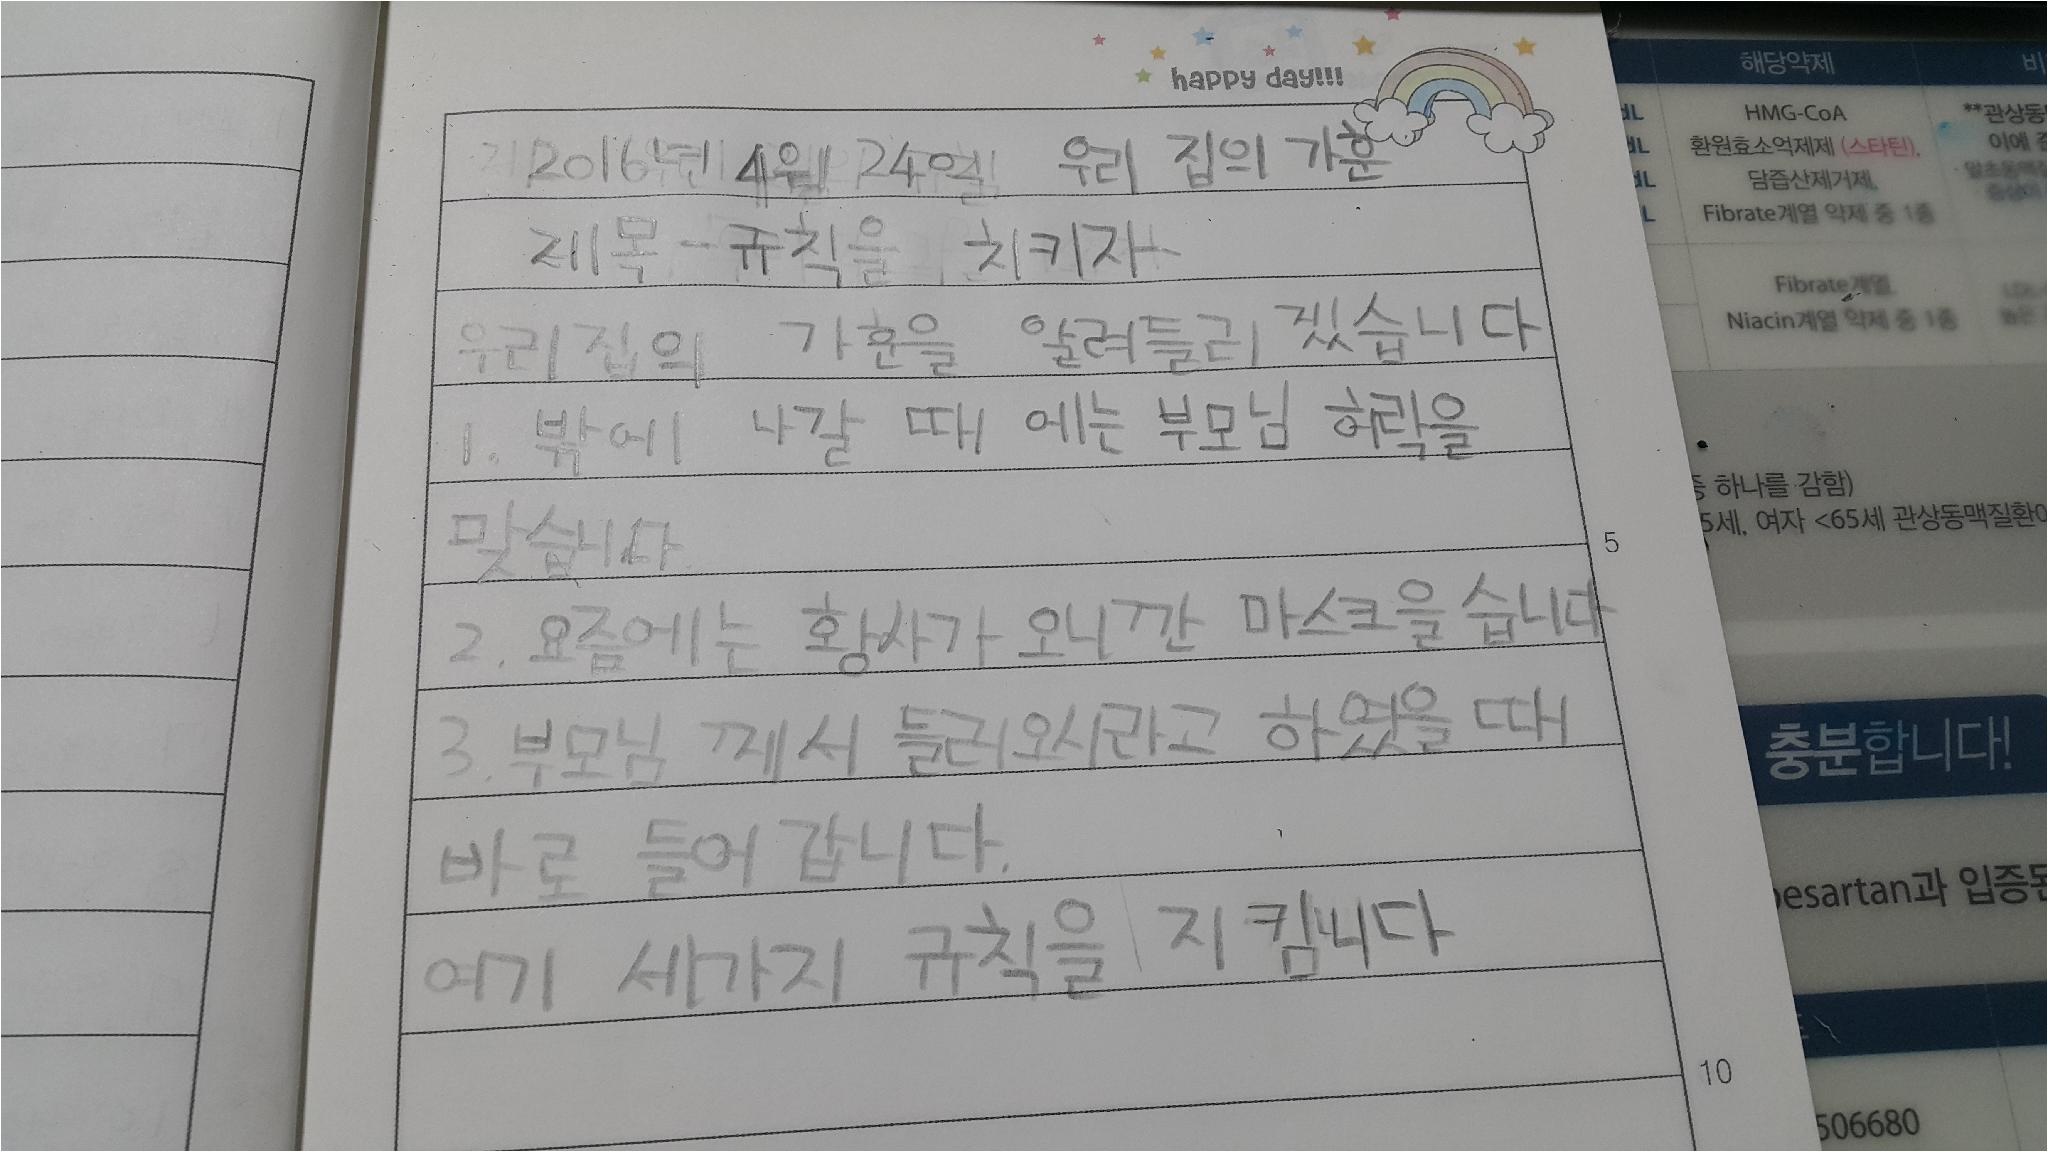 happy day!!!
2016년 4월 24일 우리 집의 가훈
제목-규칙을 치키자-
우리집의 가훈을 알려들리겠습니다
1. 밖에 나갈 때 에는 부모님 허락을
맞습니다.
2. 요즘에는 황사가 오니깐 마스크을 습니다
3. 부모님 께서 들러오시라고 하였을 때
바로 들어 갑니다.
여기 세가지 규칙을 지킴니다
5
10
해당약제
비
dL
HMG-CoA
**관상동
환원효소억제제 (스타틴),
이에 준
담즙산제거제,
Fibrate계열 약제 중 1종
Fibrate계열,
Niacin계열 약제 중 1종
중 하나를 감함)
5세, 여자 <65세 관상동맥질환이
충분합니다!
besartan과 입증된
506680